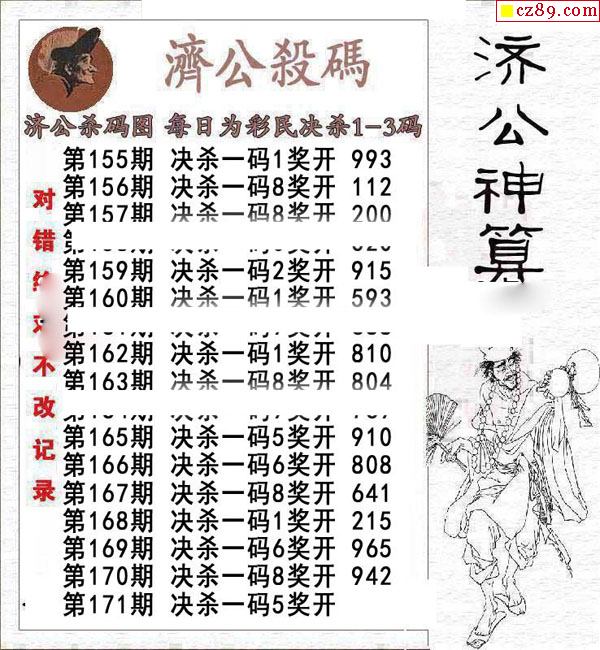 cz89.com
濟公殺碼
济公神算
济公杀码图 每日为彩民决杀1-3码
第155期 决杀一码1奖开 993
第156期 决杀一码8奖开 112
第157期 决杀一码8奖开 200
第159期 决杀一码2奖开 915
第160期 决杀一码1奖开 593
第162期 决杀一码1奖开 810
第163期 决杀一码8奖开 804
第165期 决杀一码5奖开 910
第166期 决杀一码6奖开 808
第167期 决杀一码8奖开 641
第168期 决杀一码1奖开 215
第169期 决杀一码6奖开 965
第170期 决杀一码8奖开 942
第171期 决杀一码5奖开
对错 不改记录